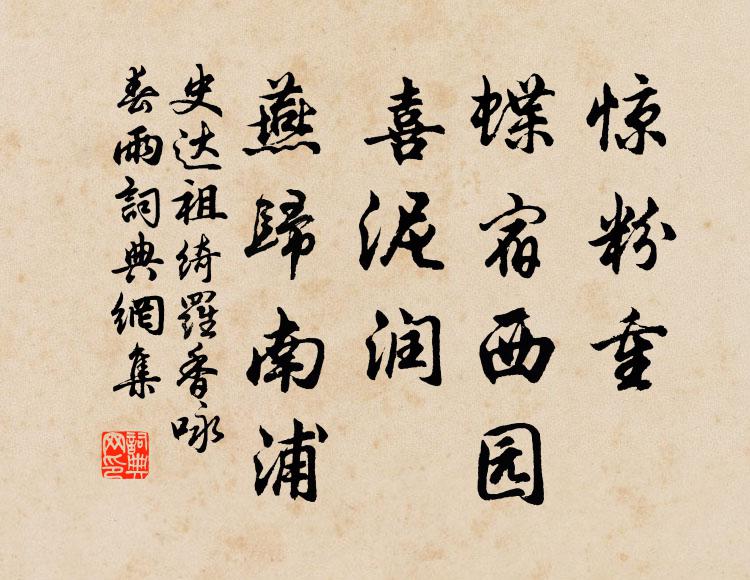 惊粉重
蝶宿西园
喜泥润
燕歸南浦
史达祖绮羅香咏
春雨詞典網集
詞典
网印